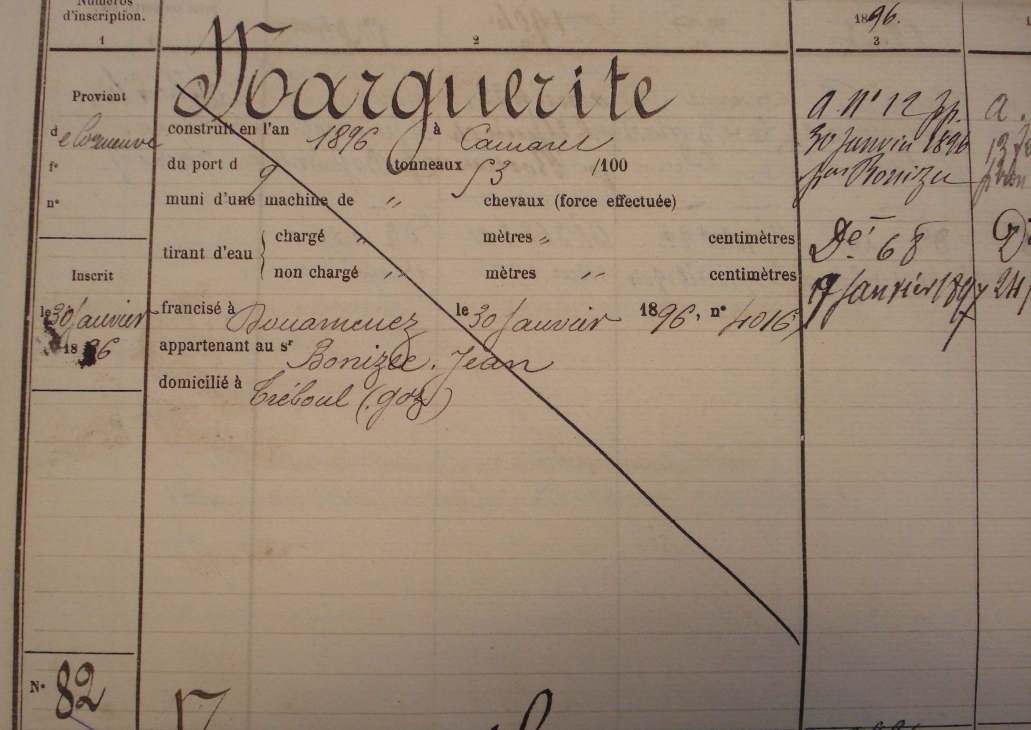 Numéros
d'inscription.
1
2
1896.
3
Marguerite
Provient
de coqueneuve
fº
nº
construit en l'an 1896 à Camaret
du port d 9 tonneaux 53 /100
muni d'une machine de " chevaux (force effectuée)
tirant d'eau { chargé " mètres " centimètres
non chargé " mètres " centimètres
Inscrit
le 30 Janvier
1896
francisé à Douarnenez le 30 Janvier 1896, nº 4016
appartenant au sr Bonizec. Jean
domicilié à Tréboul (goz)
a. nº 12 pp.
30 Janvier 1896
pr Bonizec
Dé: 68
17 Janvier 1897
a.
D
24
Nº 82